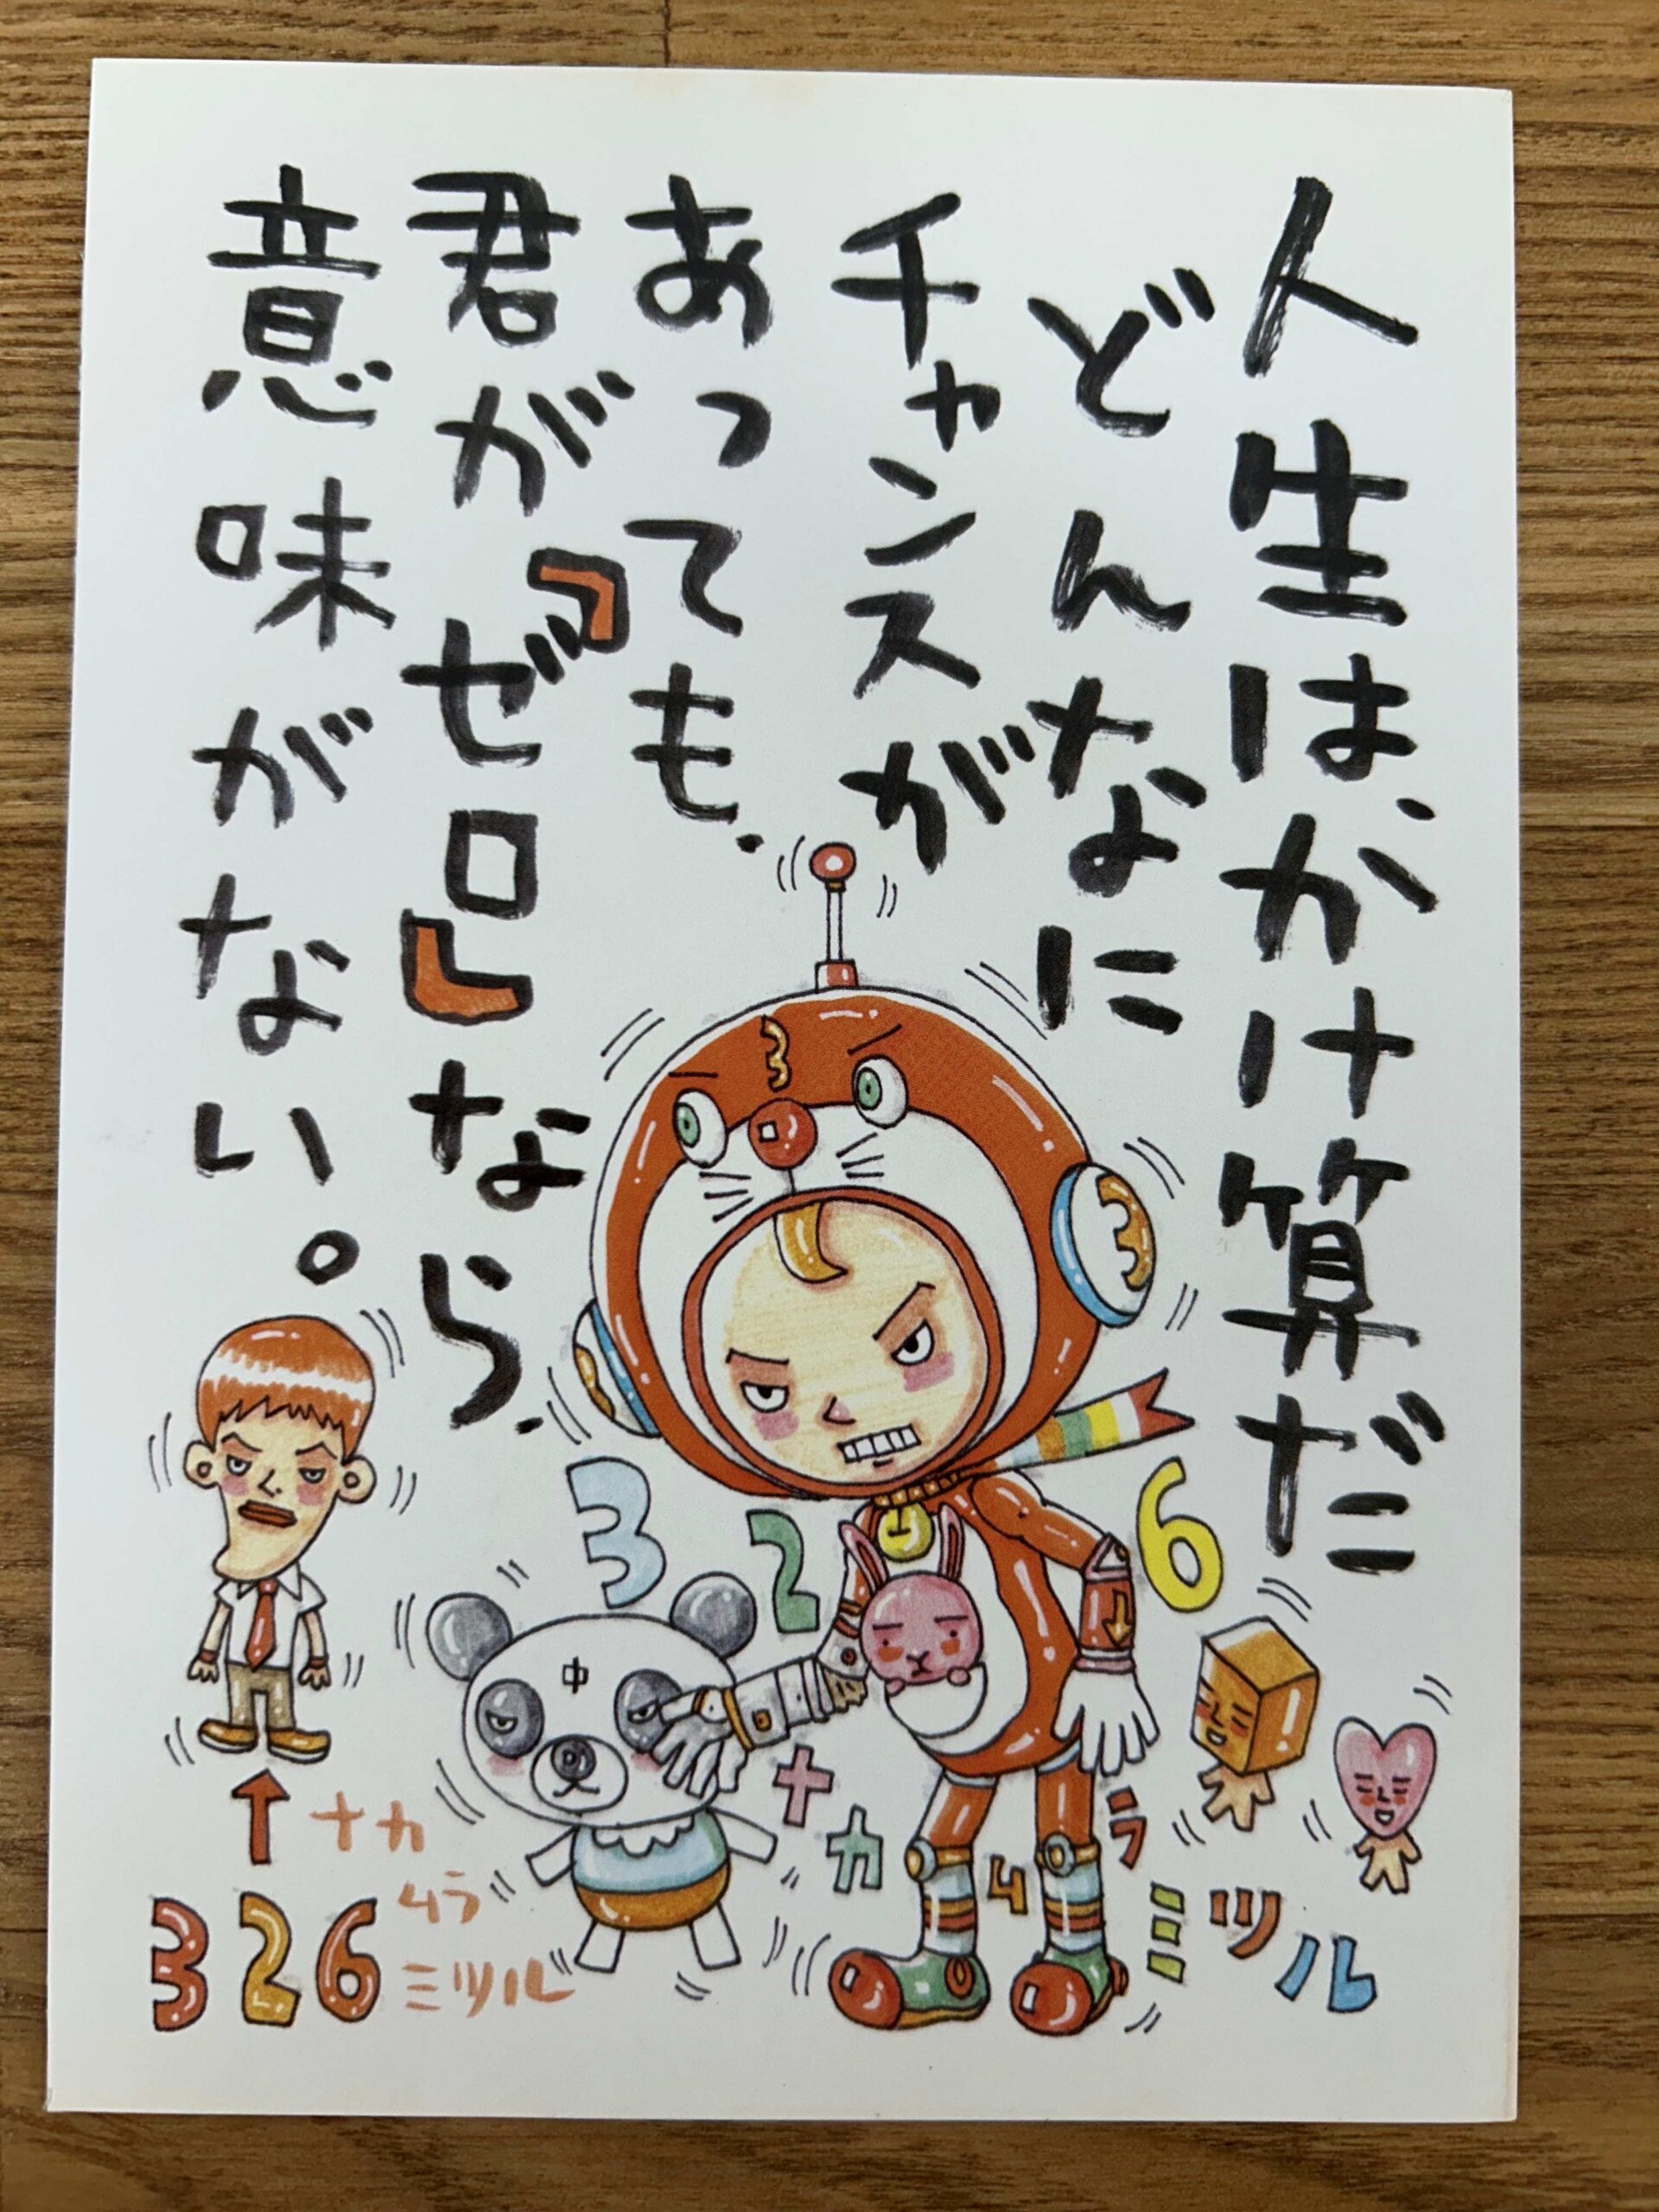 人生は、かけ算だ
どんなに
チャンスが
あっても、
君が『ゼロ』なら、
意味がない。
3
3
3 2 6
中
ナカムラ
ミツル
↑
326
ナカ
ムラ
ミツル